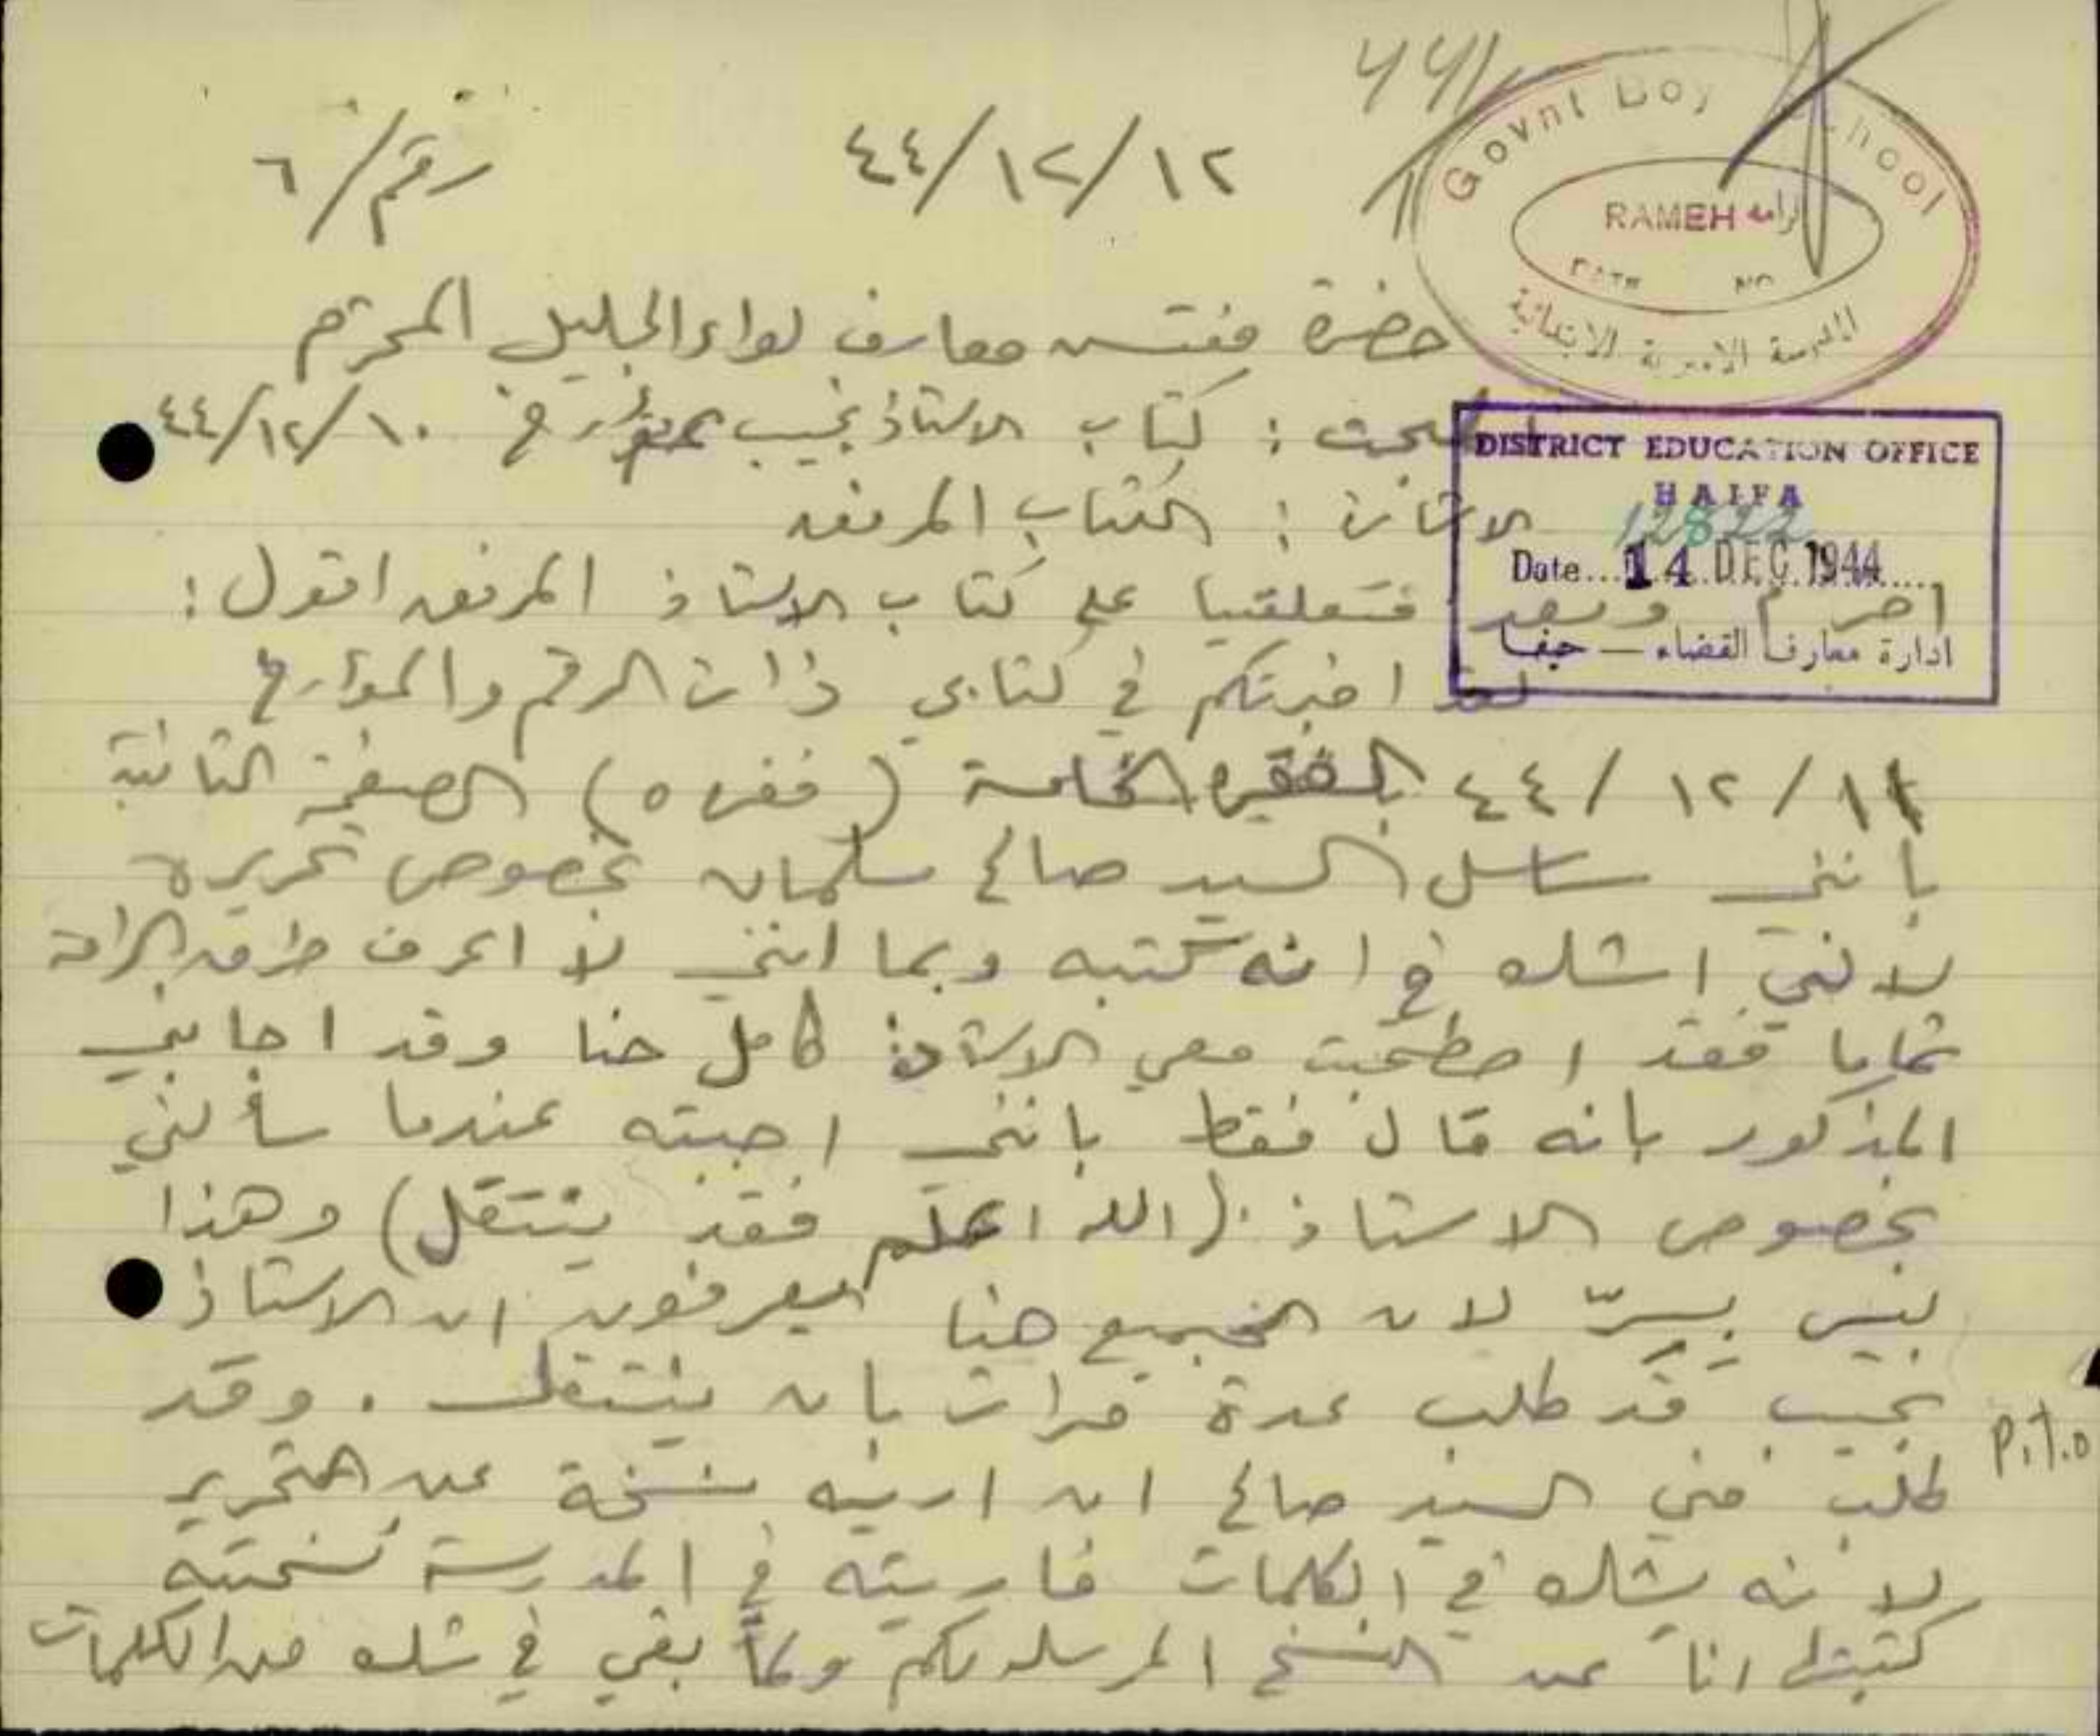 441
Govnt Boy School
رقم/٦
٤٤/١٢/١٢
RAMEH رامه
DATE NO
المدرسة الاميرية الابتدائية
حضرة مفتش معارف لواء الجليل المحترم
البحث : كتاب الاستاذ نجيب المؤرخ ٤٤/١٢/١٠
DISTRICT EDUCATION OFFICE
HAIFA
12822
Date... 14 DEC 1944
ادارة معارف القضاء — حيفا
الاشارة : الكتاب المرفق
احترام وبعد فتعليقا على كتاب الاستاذ المرفق اقول :
لقد اخبرتكم في كتابي ذات الرقم والمؤرخ
٤٤/١٢/١١ بالفقرة الخامسة (فقره ٥) الصفحة الثانية
بانني سأسل السيد صالح سلمان بخصوص تحريره
لانني اشك في انه كتبه وبما انني لا اعرف طرق الرامة
تماما فقد اصطحبت معي الاستاذ كامل حنا وقد اجابني
المذكور بانه قال فقط بانني اجبته عندما سألني
بخصوص الاستاذ : (الله اعلم فقد ينتقل) وهذا
ليس بسرّ لان الجميع هنا يعرفون ان الاستاذ
نجيب قد طلب عدة مرات بان ينتقل . وقد
طلب مني السيد صالح ان اريه نسخة عن التحرير
P.T.O
لانه يشك في الكلمات فاريته في المدرسة نسخته
كتبتها انا عن النسخ المرسله لكم ولما بقي في شك من الكلمات